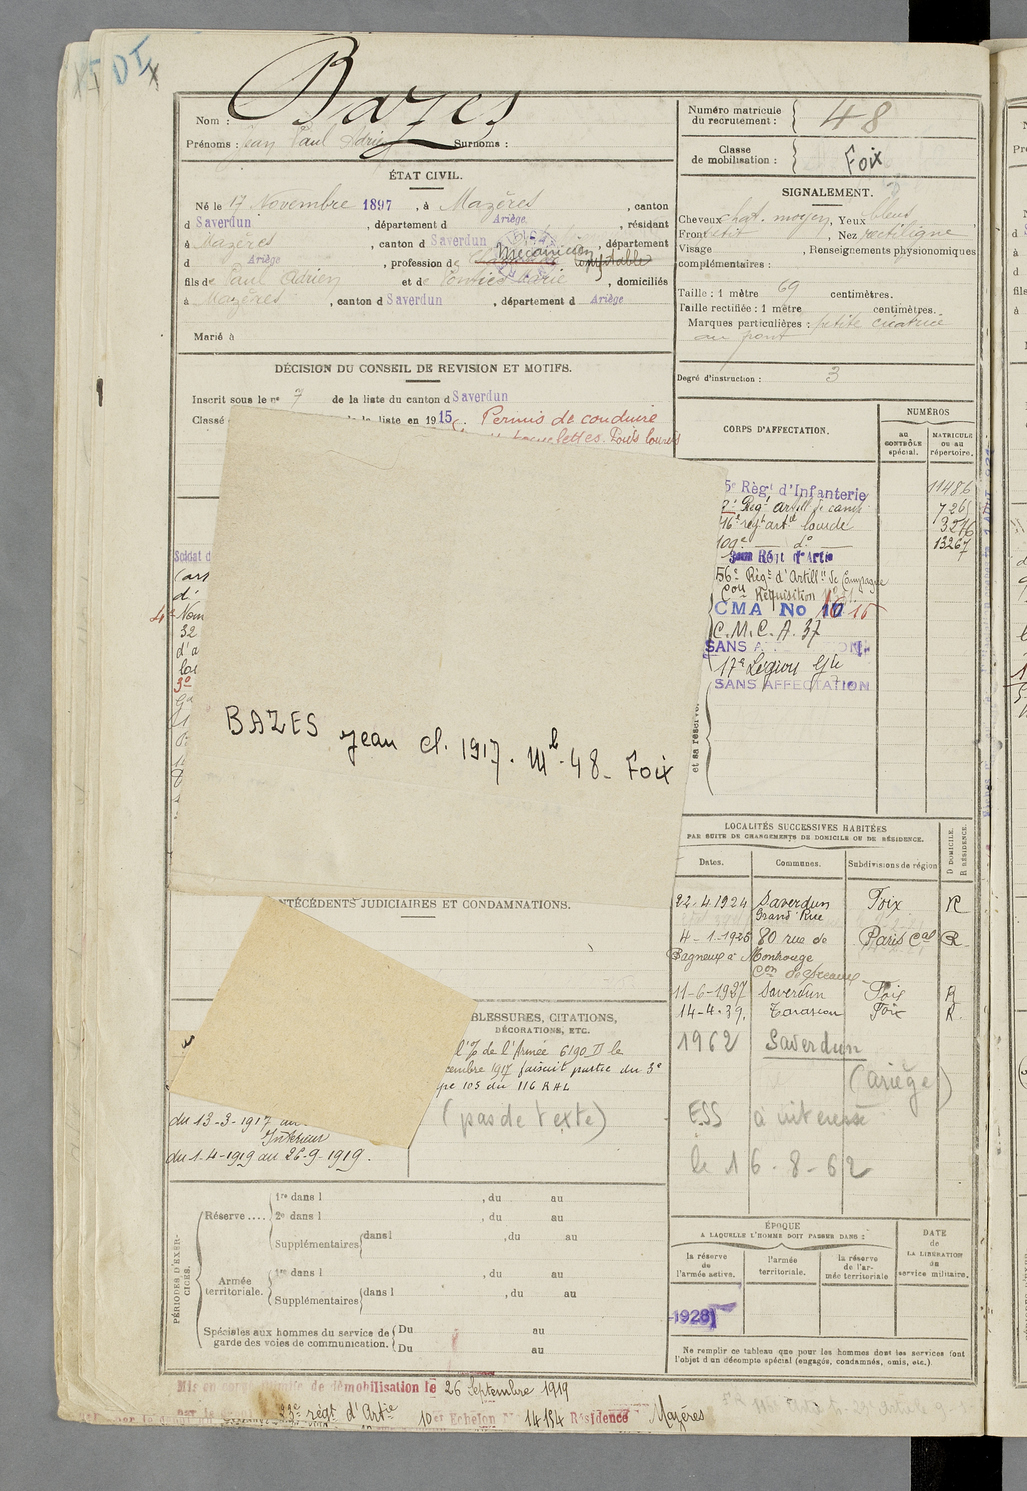 XI DI
x
Bazes
Nom :
Prénoms : Jean Paul Adrien Surnoms :
ÉTAT CIVIL.
Né le 17 Novembre 1897, à Mazères, canton
d Saverdun, département d Ariège, résidant
à Mazères, canton d Saverdun, département
d Ariège, profession de Mécanicien comptable
fils de Paul Adrien et de Marie, domiciliés
à Mazères, canton d Saverdun, département d Ariège
Marié à
DÉCISION DU CONSEIL DE REVISION ET MOTIFS.
Inscrit sous le no 7 de la liste du canton d Saverdun
Classé de la liste en 1915 Permis de conduire
Poids lourds
Soldat d
(art
d'
4e Nom
32
d'a
3o
BAZES Jean cl. 1917. Mle 48 - Foix
ANTÉCÉDENTS JUDICIAIRES ET CONDAMNATIONS.
BLESSURES, CITATIONS,
DÉCORATIONS, ETC.
de l'Armée 6190 D le
cembre 1917 faisait partie du 3e
pe 105 du 116 RAL
(pas de texte)
du 13-3-1917 au
Intérieur
du 1-4-1919 au 26-9-1919.
PÉRIODES D'EXERCICES.
Réserve .... 1re dans l , du au
2e dans l , du au
Supplémentaires dans l , du au
Armée territoriale. 1re dans l , du au
Supplémentaires dans l , du au
Spéciales aux hommes du service de garde des voies de communication. Du au
Du au
Mis en congé illimité de démobilisation le 26 Septembre 1919
par le 23e régt d'Artie 10e Echelon No 14134 Résidence Mazères
Numéro matricule
du recrutement : 48
Classe
de mobilisation : Foix
SIGNALEMENT.
Cheveux chat. moyen, Yeux bleus
Front petit, Nez rectiligne
Visage , Renseignements physionomiques
complémentaires :
Taille : 1 mètre 69 centimètres.
Taille rectifiée : 1 mètre centimètres.
Marques particulières : petite cicatrice
au front
Degré d'instruction : 3
CORPS D'AFFECTATION.
NUMÉROS
au CONTRÔLE spécial.
MATRICULE ou au répertoire.
5e Régt d'Infanterie 11486
2e Regt artill de camp 7265
116e régt artie lourde 3276
109e do 13267
Régt d'Artie
56e Régt d'Artillie de Campagne
Con Réquisition
CMA No 17 15
C.M.C.A. 37
SANS AFFECTATION
17e Légion Gie
SANS AFFECTATION
et sa réserve.
LOCALITÉS SUCCESSIVES HABITÉES
PAR SUITE DE CHANGEMENTS DE DOMICILE OU DE RÉSIDENCE.
Dates. Communes. Subdivisions de région D DOMICILE. R RÉSIDENCE.
22.4.1924 Saverdun Foix R
Grand'Rue
4-1-1926 80 rue de Paris Cal R
Bagneux à Montrouge
Con de Sceaux
11-6-1927 Saverdun Foix R
14-4-39. Tarascon Foix R.
1962 Saverdun
(Ariège)
ESS a intéressé
le 16-8-62
ÉPOQUE
A LAQUELLE L'HOMME DOIT PASSER DANS :
la réserve de l'armée active.
l'armée territoriale.
la réserve de l'armée territoriale
DATE de LA LIBÉRATION du service militaire.
1928
Ne remplir ce tableau que pour les hommes dont les services font
l'objet d'un décompte spécial (engagés, condamnés, omis, etc.).